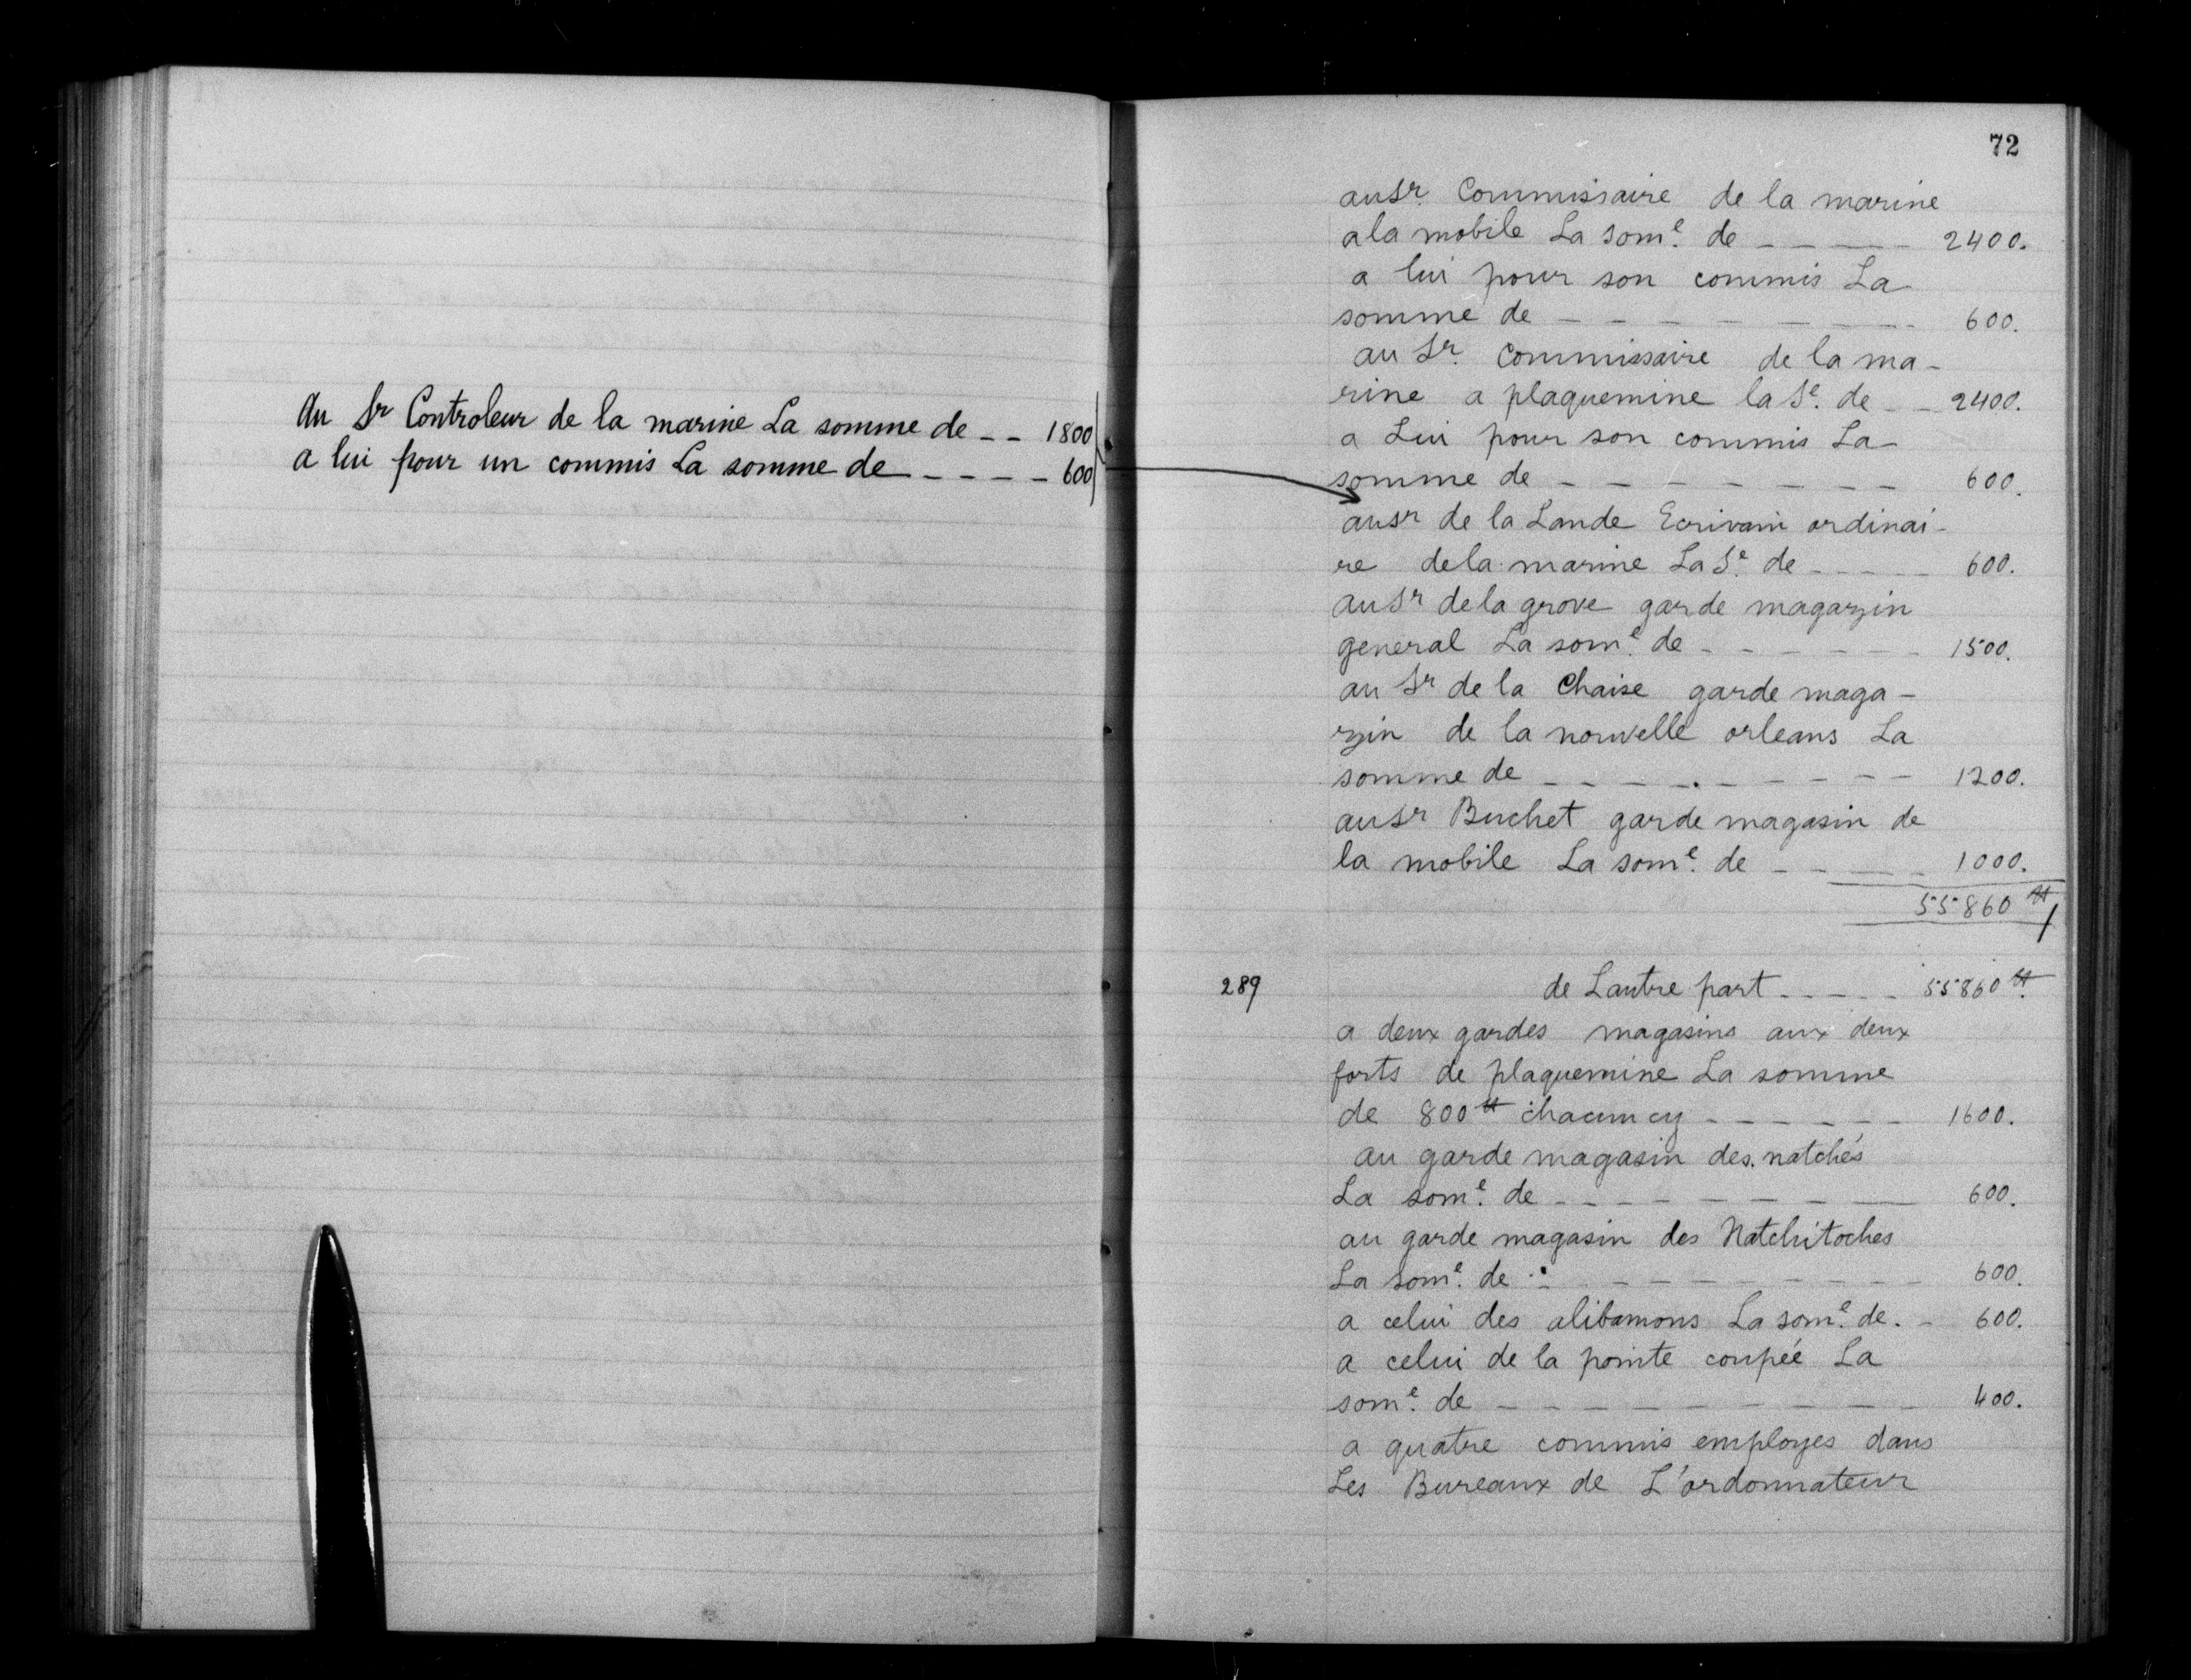 Au Sr Controleur de la marine La somme de _ _ 1800
a lui pour un commis La somme de _ _ _ _ 600
72
au Sr. Commissaire de la marine
a la mobile La some. de _ _ _ _ 2400.
a lui pour son commis La
somme de _ _ _ _ _ _ _ _ 600.
au Sr. Commissaire de la ma-
rine a plaquemine la Se. de _ _ 2400.
a Lui pour son commis La
somme de _ _ _ _ _ _ _ 600.
au Sr de la Lande Ecrivain ordinai-
re de la marine La Se. de _ _ _ _ 600.
au Sr de la grove garde magazin
general La some. de _ _ _ _ _ 1500.
au Sr de la Chaise garde maga-
zin de la nouvelle orleans La
somme de _ _ _ _ _ _ _ _ 1200.
au Sr Buchet garde magasin de
la mobile La some. de _ _ _ _ 1000.
55860 ₶
289 de Lautre part _ _ _ _ _ 55860 ₶.
a deux gardes magasins aux deux
forts de plaquemine La somme
de 800 ₶ chacun cy _ _ _ _ _ _ 1600.
au garde magasin des natchés
La some. de _ _ _ _ _ _ _ _ 600.
au garde magasin des Natchitoches
La some. de _ _ _ _ _ _ _ _ 600.
a celui des alibamons La some. de. _ 600.
a celui de la pointe coupée La
some. de _ _ _ _ _ _ _ _ _ 400.
a quatre commis employes dans
Les Bureaux de L'ordonnateur